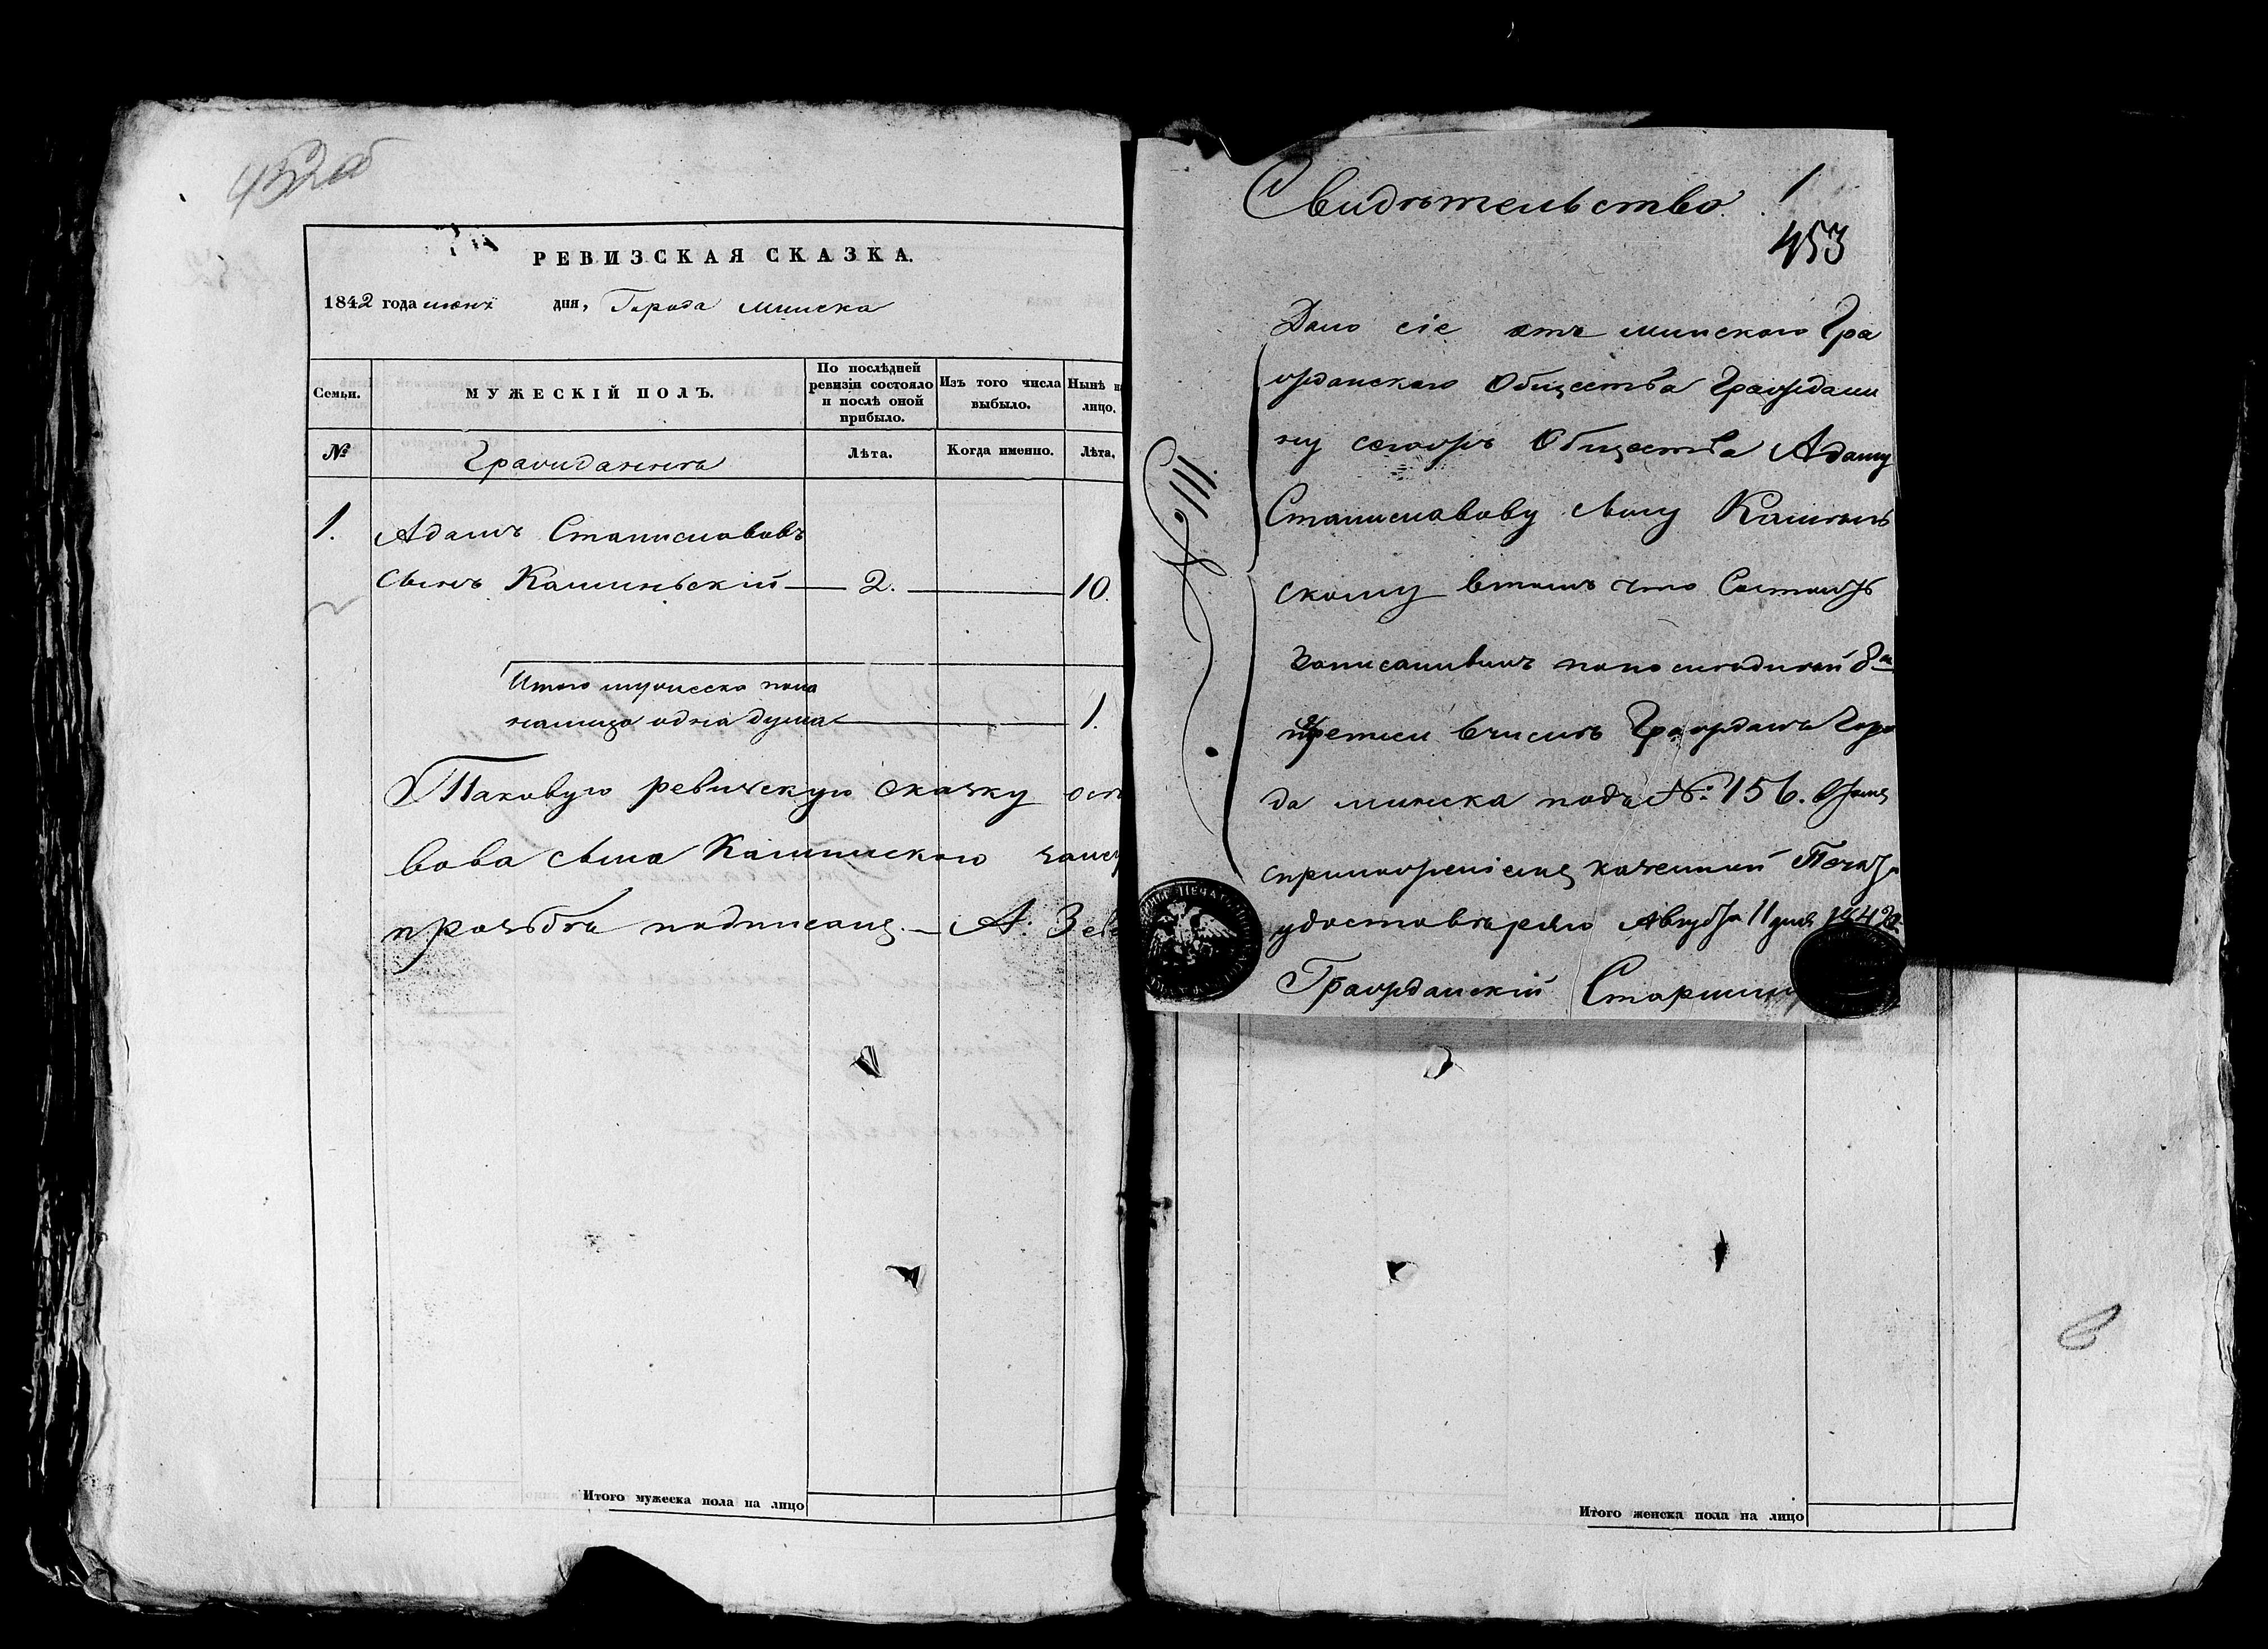 452об
РЕВИЗСКАЯ СКАЗКА.
1842 года июня дня, Города Минска
Семьи.
МУЖЕСКІЙ ПОЛЪ.
По послѣдней
ревизіи состояло
и послѣ оной
прибыло.
Изъ того числа
выбыло.
Нынѣ н
лицо.
№
Гражданинъ
Лѣта.
Когда именно.
Лѣта.
1. Адамъ Станиславовъ
сынъ Каминьскій — 2. — 10.
Итого мужеска пола
налицо одна душа — 1.
Таковую ревизскую сказку
вова сына Каминскаго
прозьбѣ подписалъ — А.
Итого мужеска пола на лицо
Свидѣтельство. 1
453
№ 111.
Дано сіе отъ Минского Гра
жданского Общества Граждани
ну сегожъ Общества Адаму
Станиславову сыну Камень
скому втомъ что Состоитъ
Записаннымъ попоследней 8й
вчислѣ Гражданъ Горо
да Минска подъ № 156. втомъ
казенной Печати
удостовѣряю Августа 11 дня 1842
Гражданскій Старшина
Итого женска пола на лицо